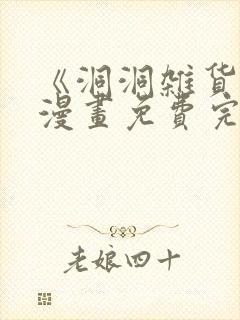 《洞洞雑货
漫畫免費完
老娘四十